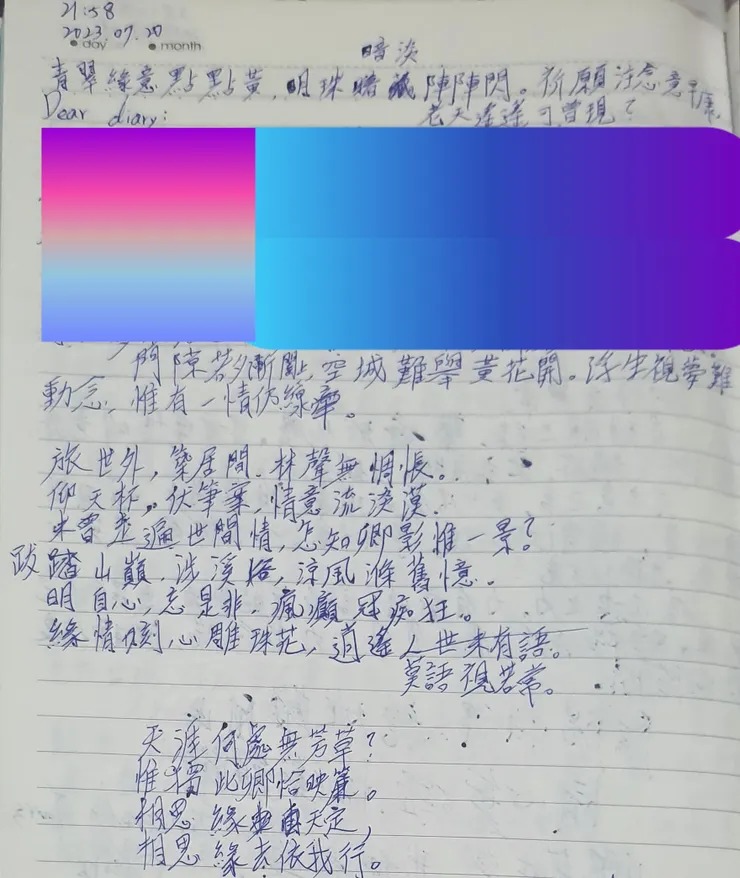 21:58
2023.07.20
day month
暗淡
青翠緣意點點黃,明珠暗藏陣陣閃。祈願注念意
Dear diary:
老天逢逢可曾現?
門隙若多漸點,空城難舉黃花開。浮生視夢難
動念,惟有一情伤缘牽。
旅世外,築居間.林聲無惆悵。
仰天杯,伏筆寨,情意流淡漠.
未曾走遍世間情,怎知卿影惟一景?
跋踏山巔,涉溪谷,涼風滌舊憶。
明自心,忘是非,瘋癲冠痴狂。
緣情刻,心雕珠花,道遙人世未有語。
莫語視若常。
天涯何處無芳草?
惟獨此卿恰映簾。
相思緣由天定,
相思緣去依我行。